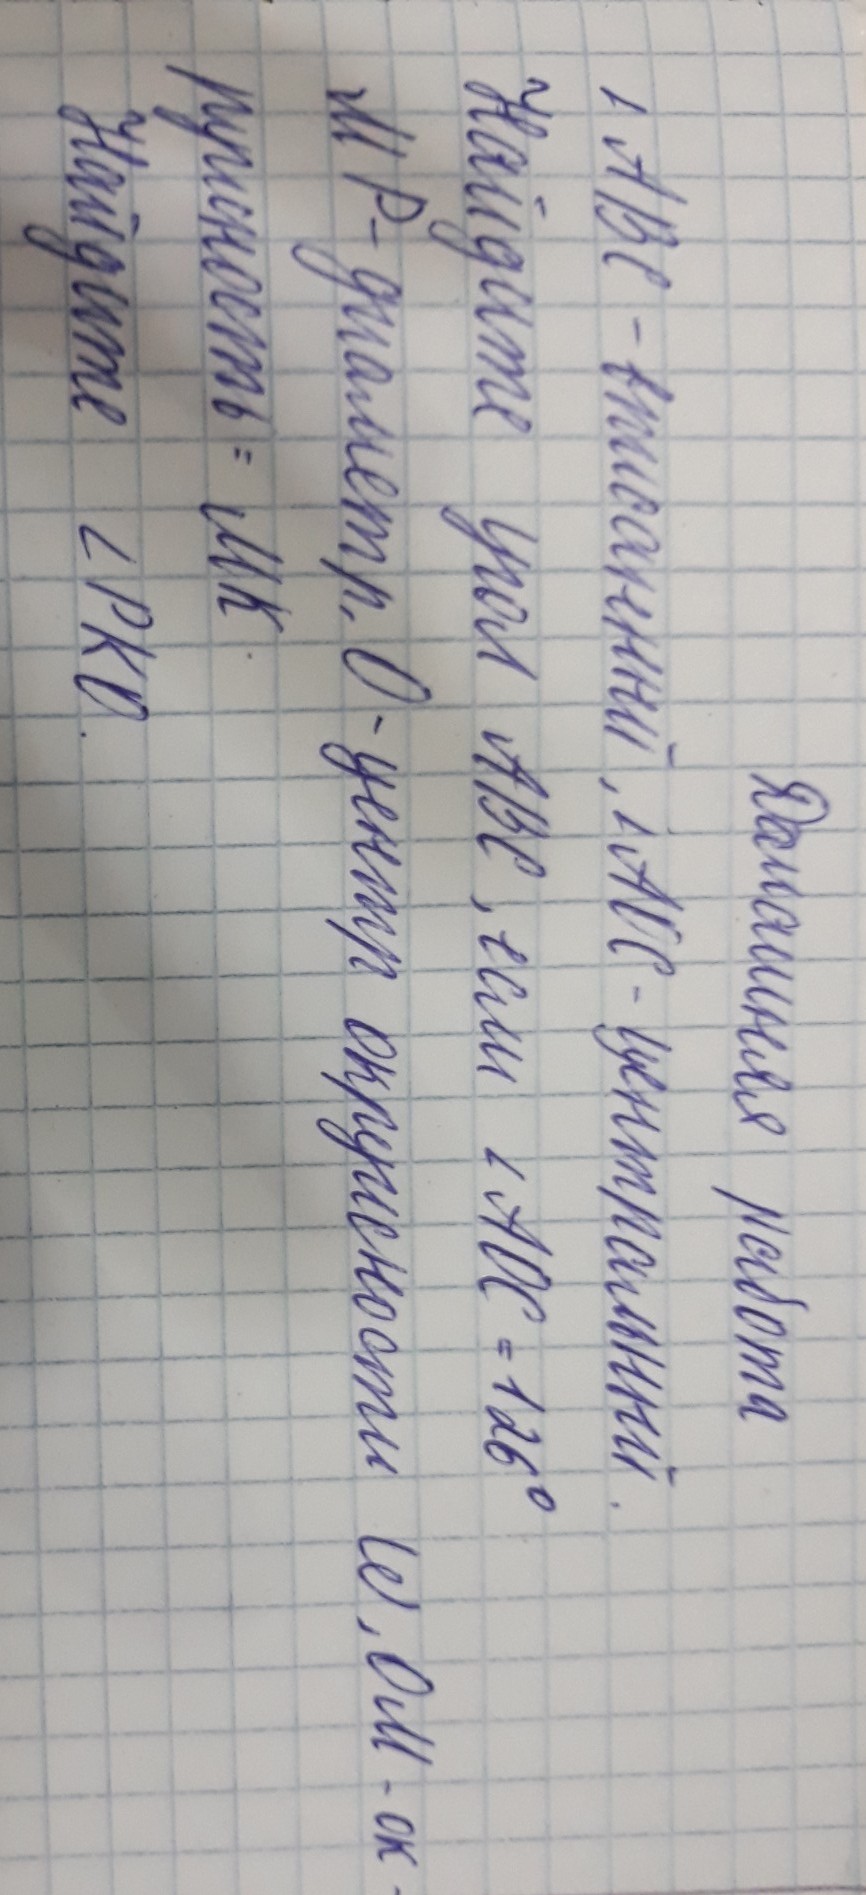 Домашняя работа
∠ABC - вписанный, ∠AOC - центральный.
Найдите угол ABC, если ∠AOC = 126°
MP - диаметр, O - центр окружности (e), OM - ок-
ружность = MK.
Найдите ∠PKO.